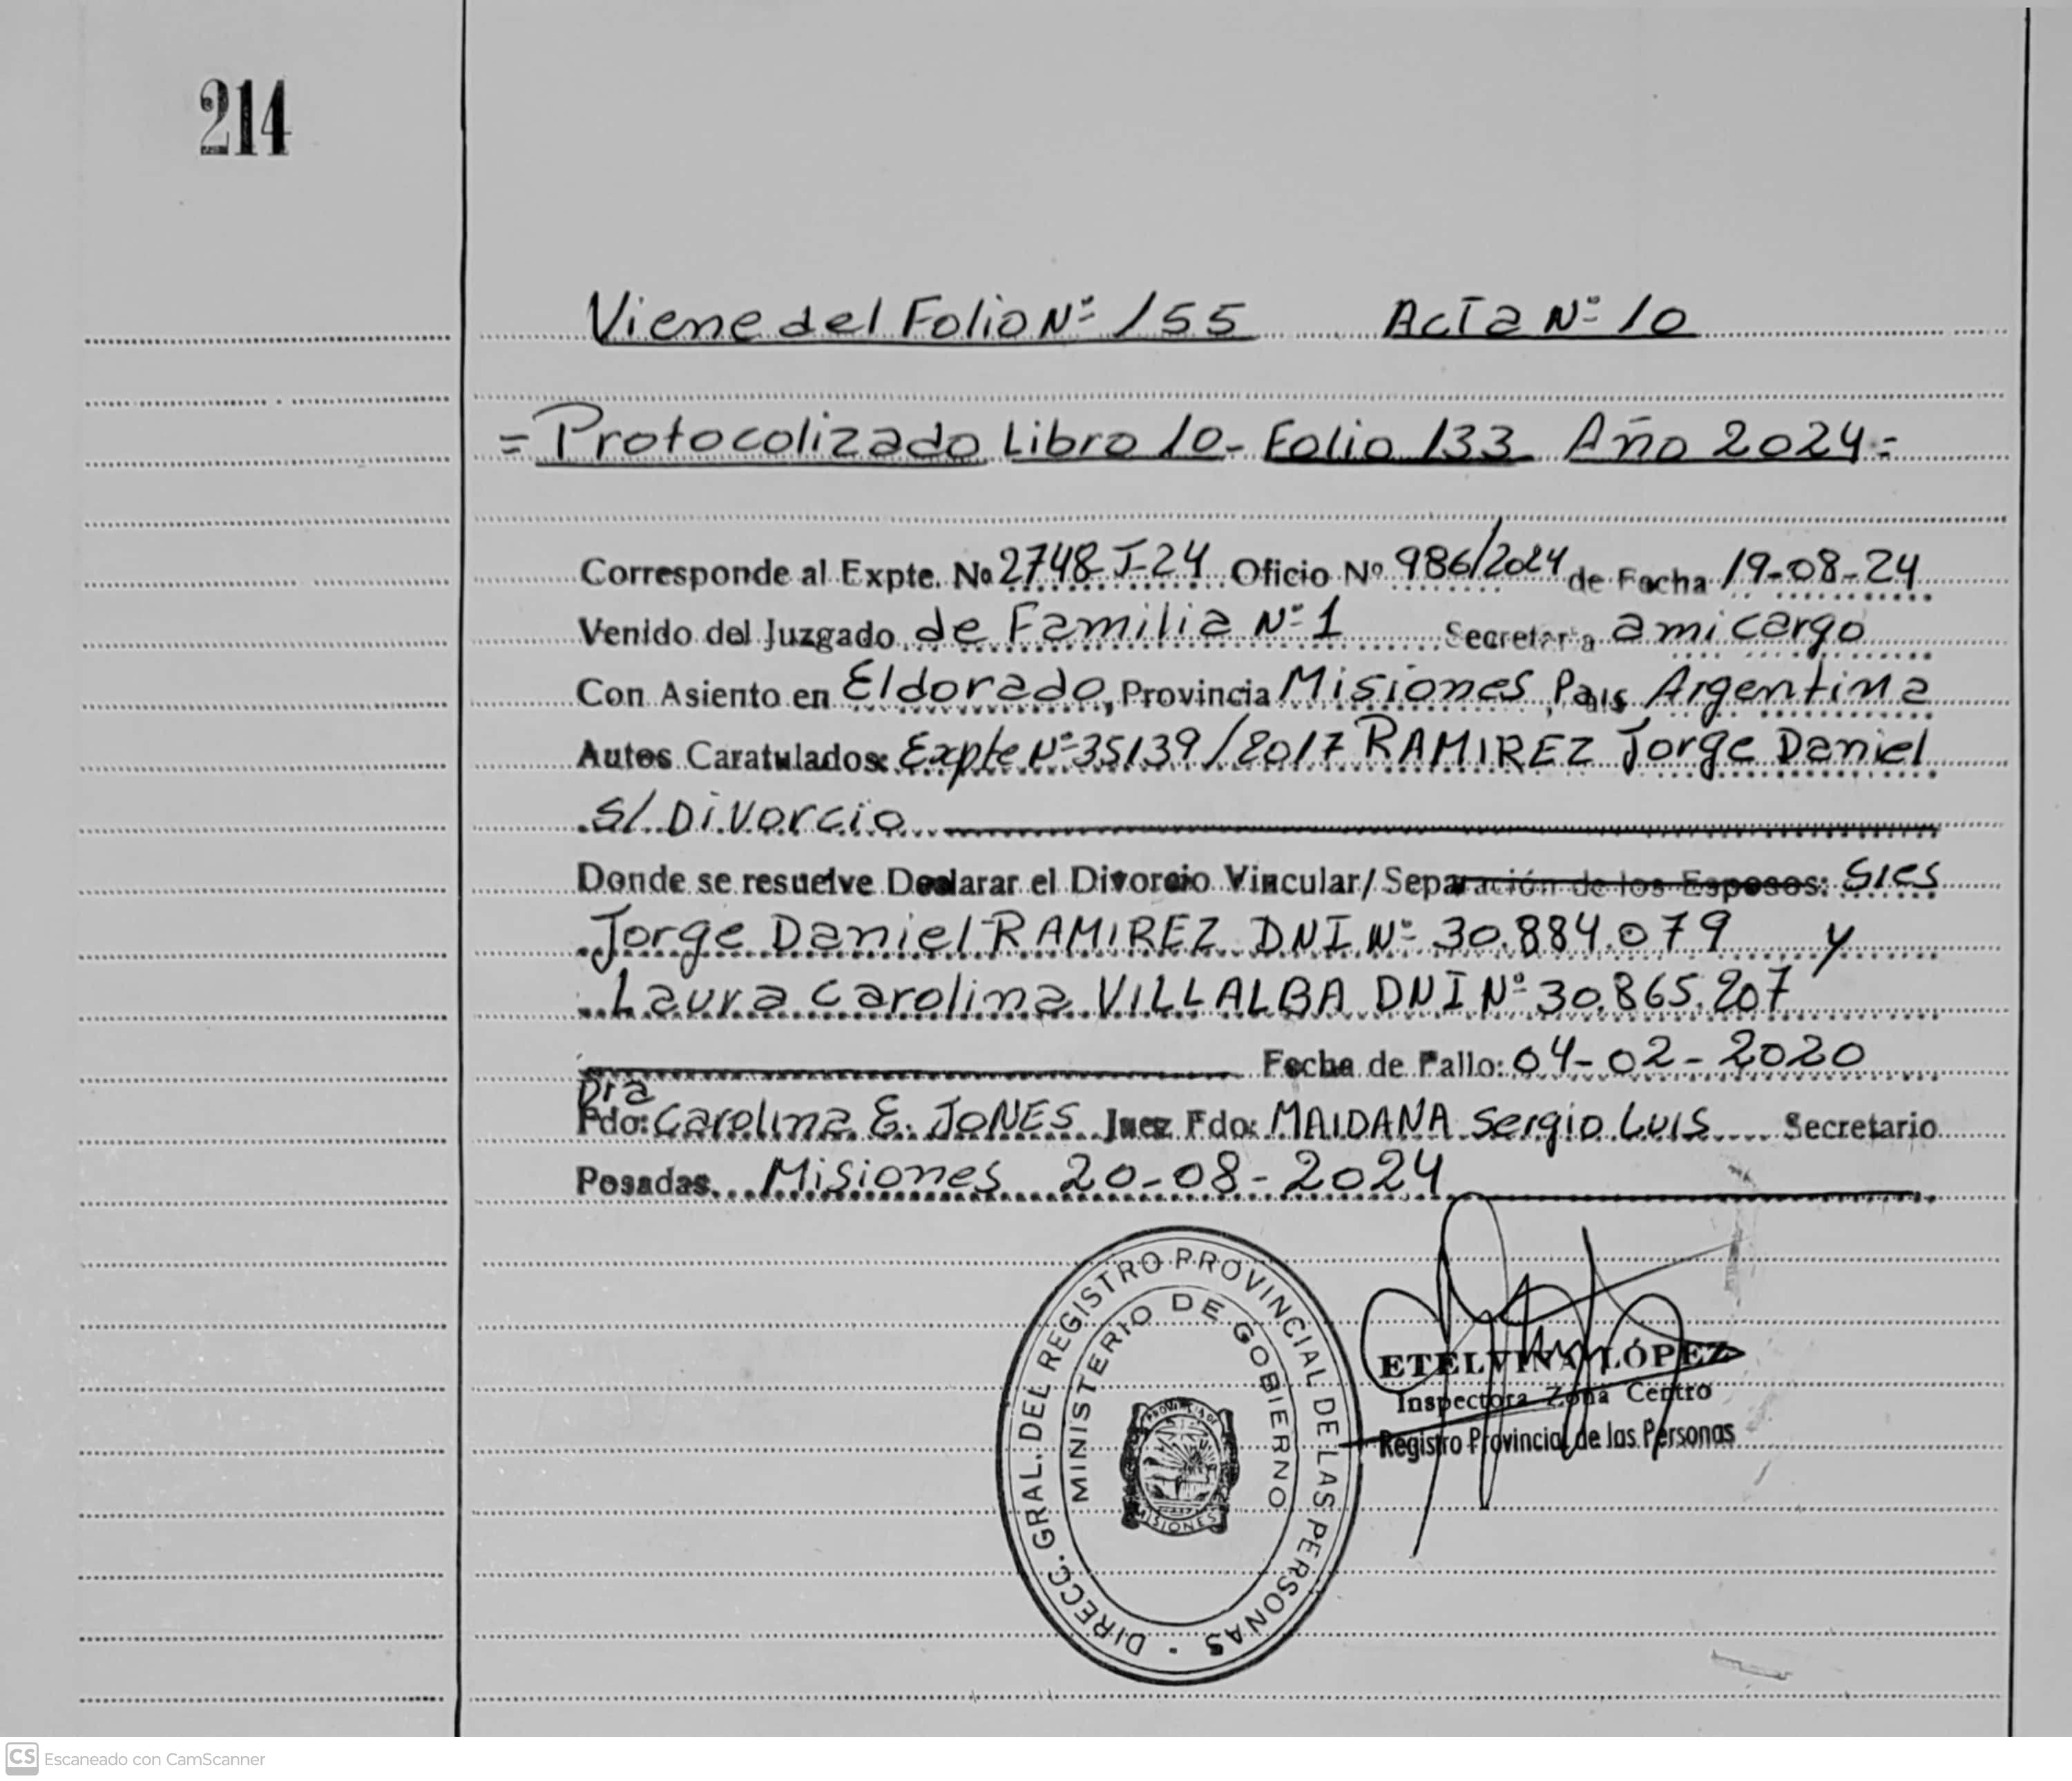 214
Viene del Folio Nº 155 Acta Nº 10
= Protocolizado Libro 10- Folio 133 Año 2024=
Corresponde al Expte. Nº 2748-J-24 Oficio Nº 986/2024 de Fecha 19-08-24
Venido del Juzgado de Familia Nº 1 Secretaria a mi cargo
Con Asiento en Eldorado, Provincia Misiones, País Argentina
Autos Caratulados: Expte Nº 35139/2017 RAMIREZ Jorge Daniel
s/ Divorcio
Donde se resuelve Declarar el Divorcio Vincular/ Separación de los Esposos: Sres
Jorge Daniel RAMIREZ DNI Nº 30.884.079 y
Laura Carolina VILLALBA DNI Nº 30.865.207
Fecha de Fallo: 04-02-2020
Dra
Fdo: Carolina E. JONES Juez Fdo: MAIDANA Sergio Luis Secretario
Posadas, Misiones 20-08-2024
DIRECC. GRAL. DEL REGISTRO PROVINCIAL DE LAS PERSONAS
MINISTERIO DE GOBIERNO
PROVINCIA DE
MISIONES
ETELVINA LÓPEZ
Inspectora Zona Centro
Registro Provincial de las Personas
CS Escaneado con CamScanner